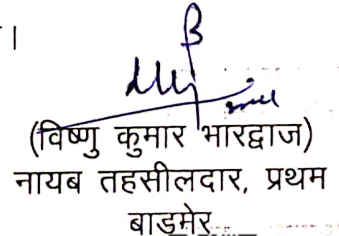 ।
(विष्णु कुमार भारद्वाज)
नायब तहसीलदार, प्रथम
बाड़मेर